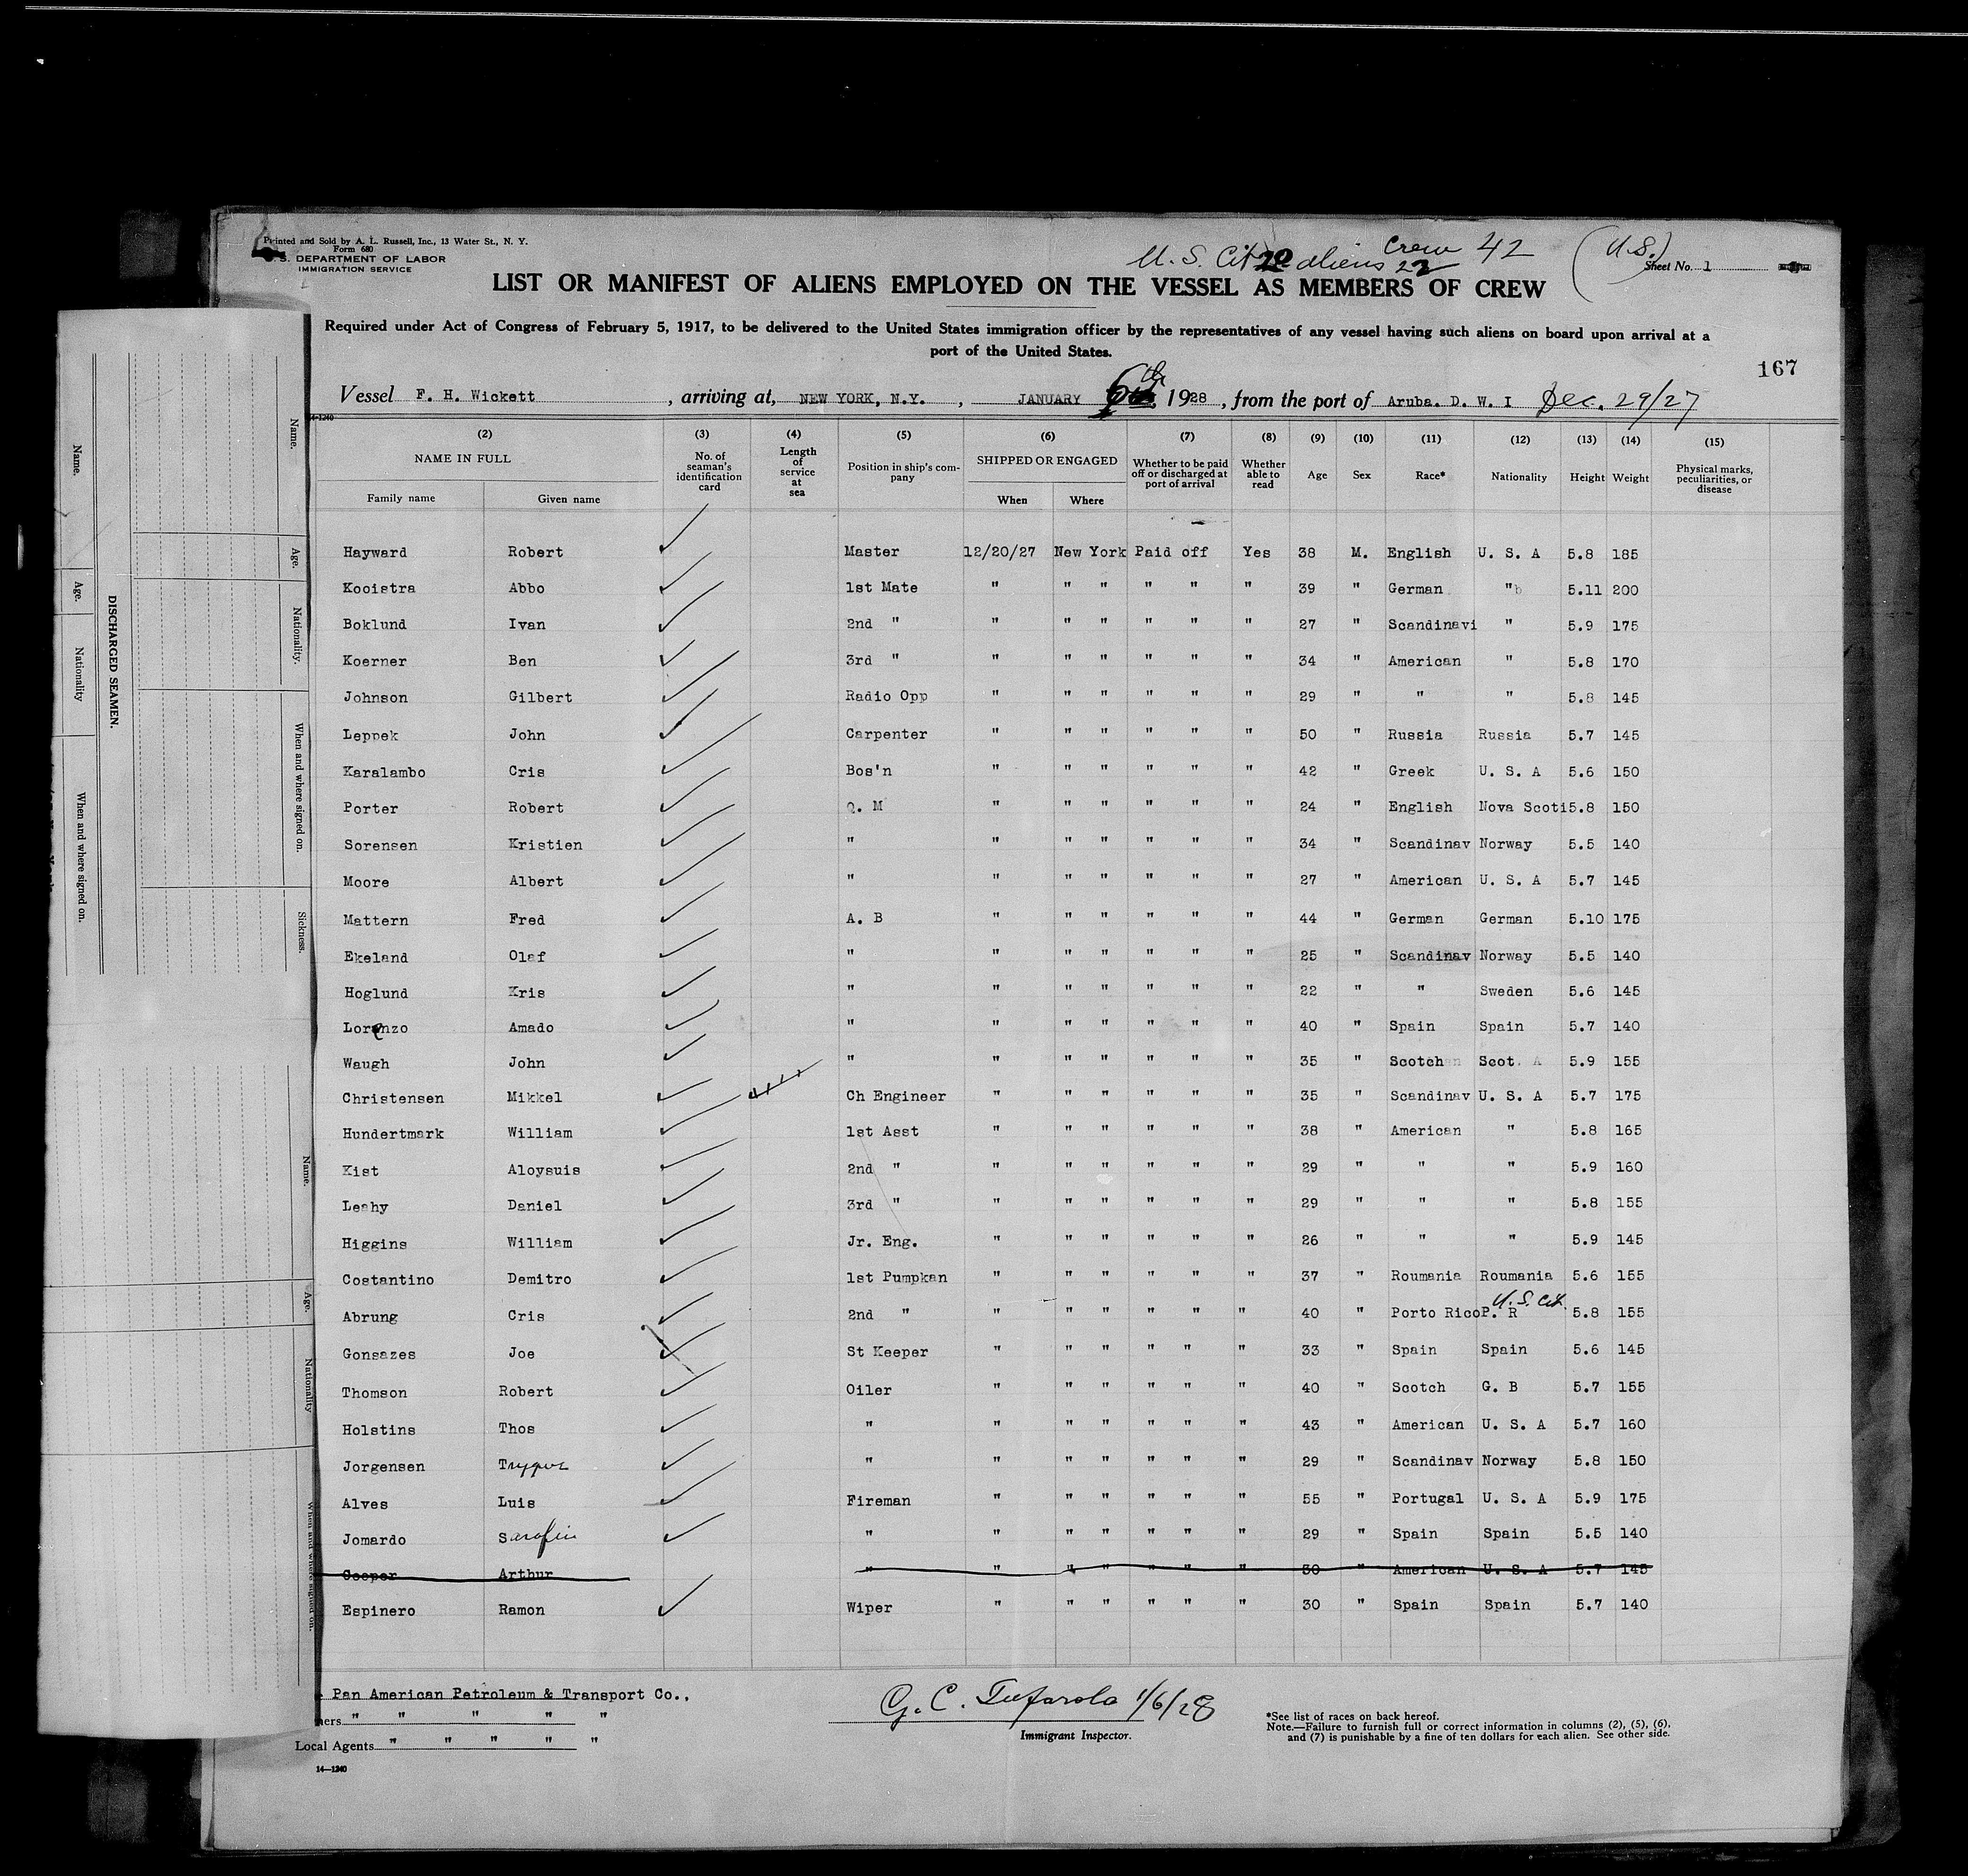 Printed and Sold by A. L. Russell, Inc., 13 Water St., N. Y.
Form 680
S. DEPARTMENT OF LABOR
IMMIGRATION SERVICE
U. S. Cit 20 aliens 22 Crew 42 (U.S.)
Sheet No. 1
LIST OR MANIFEST OF ALIENS EMPLOYED ON THE VESSEL AS MEMBERS OF CREW
Required under Act of Congress of February 5, 1917, to be delivered to the United States immigration officer by the representatives of any vessel having such aliens on board upon arrival at a
port of the United States.
167
Vessel F. H. Wickett, arriving at, NEW YORK, N.Y., JANUARY 6th 1928, from the port of Aruba. D. W. I Dec. 29/27
14-1240
(2) (3) (4) (5) (6) (7) (8) (9) (10) (11) (12) (13) (14) (15)
NAME IN FULL No. of seaman's identification card Length of service at sea Position in ship's company SHIPPED OR ENGAGED Whether to be paid off or discharged at port of arrival Whether able to read Age Sex Race* Nationality Height Weight Physical marks, peculiarities, or disease
Family name Given name When Where
Hayward Robert Master 12/20/27 New York Paid off Yes 38 M. English U. S. A 5.8 185
Kooistra Abbo 1st Mate " " " " " " 39 " German " 5.11 200
Boklund Ivan 2nd " " " " " " " 27 " Scandinavi " 5.9 175
Koerner Ben 3rd " " " " " " " 34 " American " 5.8 170
Johnson Gilbert Radio Opp " " " " " " 29 " " " 5.8 145
Leppek John Carpenter " " " " " " 50 " Russia Russia 5.7 145
Karalambo Cris Bos'n " " " " " " 42 " Greek U. S. A 5.6 150
Porter Robert Q. M " " " " " " 24 " English Nova Scoti 5.8 150
Sorensen Kristien " " " " " " " 34 " Scandinav Norway 5.5 140
Moore Albert " " " " " " " 27 " American U. S. A 5.7 145
Mattern Fred A. B " " " " " " 44 " German German 5.10 175
Ekeland Olaf " " " " " " " 25 " Scandinav Norway 5.5 140
Hoglund Kris " " " " " " " 22 " " Sweden 5.6 145
Lorenzo Amado " " " " " " " 40 " Spain Spain 5.7 140
Waugh John " " " " " " " 35 " Scotch Scot. 5.9 155
Christensen Mikkel Ch Engineer " " " " " " 35 " Scandinav U. S. A 5.7 175
Hundertmark William 1st Asst " " " " " " 38 " American " 5.8 165
Kist Aloysuis 2nd " " " " " " " 29 " " " 5.9 160
Leahy Daniel 3rd " " " " " " " 29 " " " 5.8 155
Higgins William Jr. Eng. " " " " " " 26 " " " 5.9 145
Costantino Demitro 1st Pumpkan " " " " " " 37 " Roumania Roumania 5.6 155
Abrung Cris 2nd " " " " " " " 40 " Porto Rico P. R U.S. Cit. 5.8 155
Gonsazes Joe St Keeper " " " " " " 33 " Spain Spain 5.6 145
Thomson Robert Oiler " " " " " " 40 " Scotch G. B 5.7 155
Holstins Thos " " " " " " " 43 " American U. S. A 5.7 160
Jorgensen " " " " " " " 29 " Scandinav Norway 5.8 150
Alves Luis Fireman " " " " " " 55 " Portugal U. S. A 5.9 175
Jomardo Sarafin " " " " " " " 29 " Spain Spain 5.5 140
Cooper Arthur " " " " " " " 30 " American U. S. A 5.7 145
Espinero Ramon Wiper " " " " " " 30 " Spain Spain 5.7 140
Pan American Petroleum & Transport Co.,
ners " " " " "
Local Agents " " " " "
14—1240
G. C. Tufarolo 1/6/28
Immigrant Inspector.
*See list of races on back hereof.
Note.—Failure to furnish full or correct information in columns (2), (5), (6),
and (7) is punishable by a fine of ten dollars for each alien. See other side.
DISCHARGED SEAMEN.
Name.
Age.
Nationality
When and where signed on.
Name.
Age.
Nationality.
When and where signed on.
Sickness.
Name.
Age.
Nationality
When and where signed on.